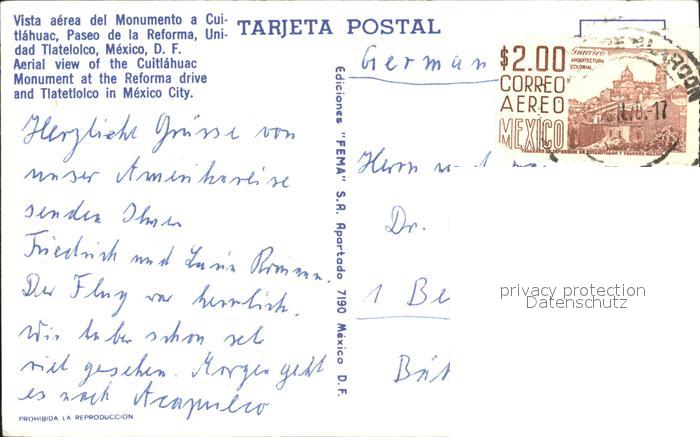 Vista aérea del Monumento a Cui-
tláhuac, Paseo de la Reforma, Uni-
dad Tlatelolco, México, D. F.
Aerial view of the Cuitláhuac
Monument at the Reforma drive
and Tlatetlolco in México City.
Herzliche Grüsse von
unser Amerikareise
senden Ihnen
Friedrich und
Der Flug war herrlich.
Wir haben schon seh
viel gesehen. Morgen geht
es nach Acapulco
PROHIBIDA LA REPRODUCCION.
TARJETA POSTAL
Ediciones "FEMA" S.A. Apartado 7190 México D.F.
Germany
$2.00
CORREO
AEREO
MEXICO
Guerrero
ARQUITECTURA
COLONIAL
Herrn
Dr.
1 Be
privacy protection
Datenschutz